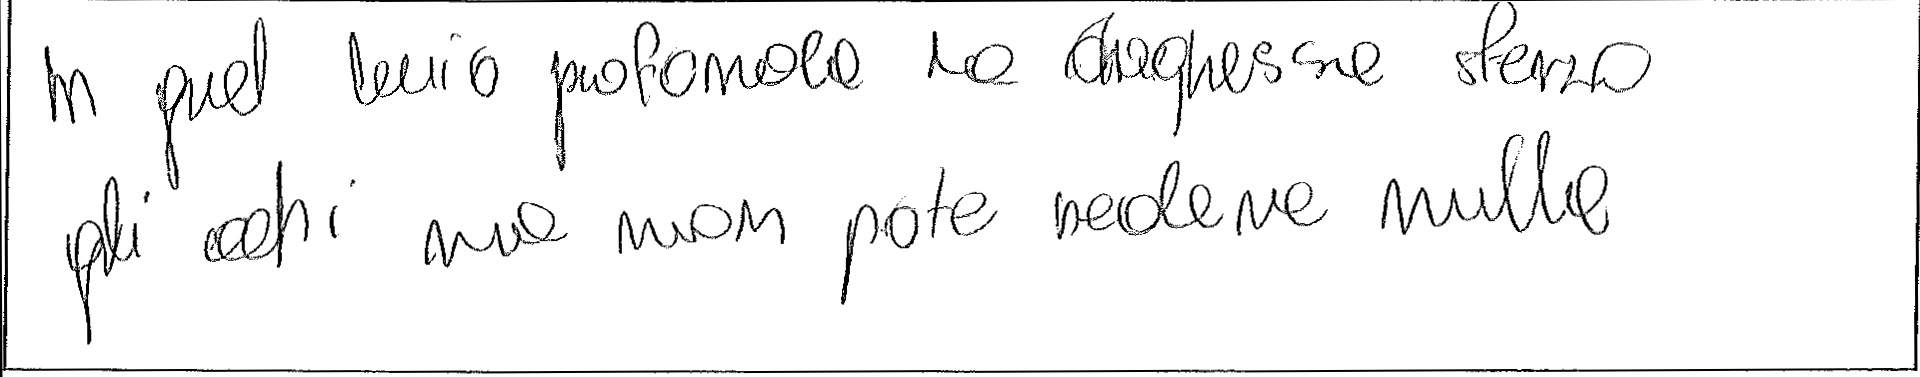 In quel buio profondo la dragnessa sterzo
gli occhi ma non pote vedere nulla